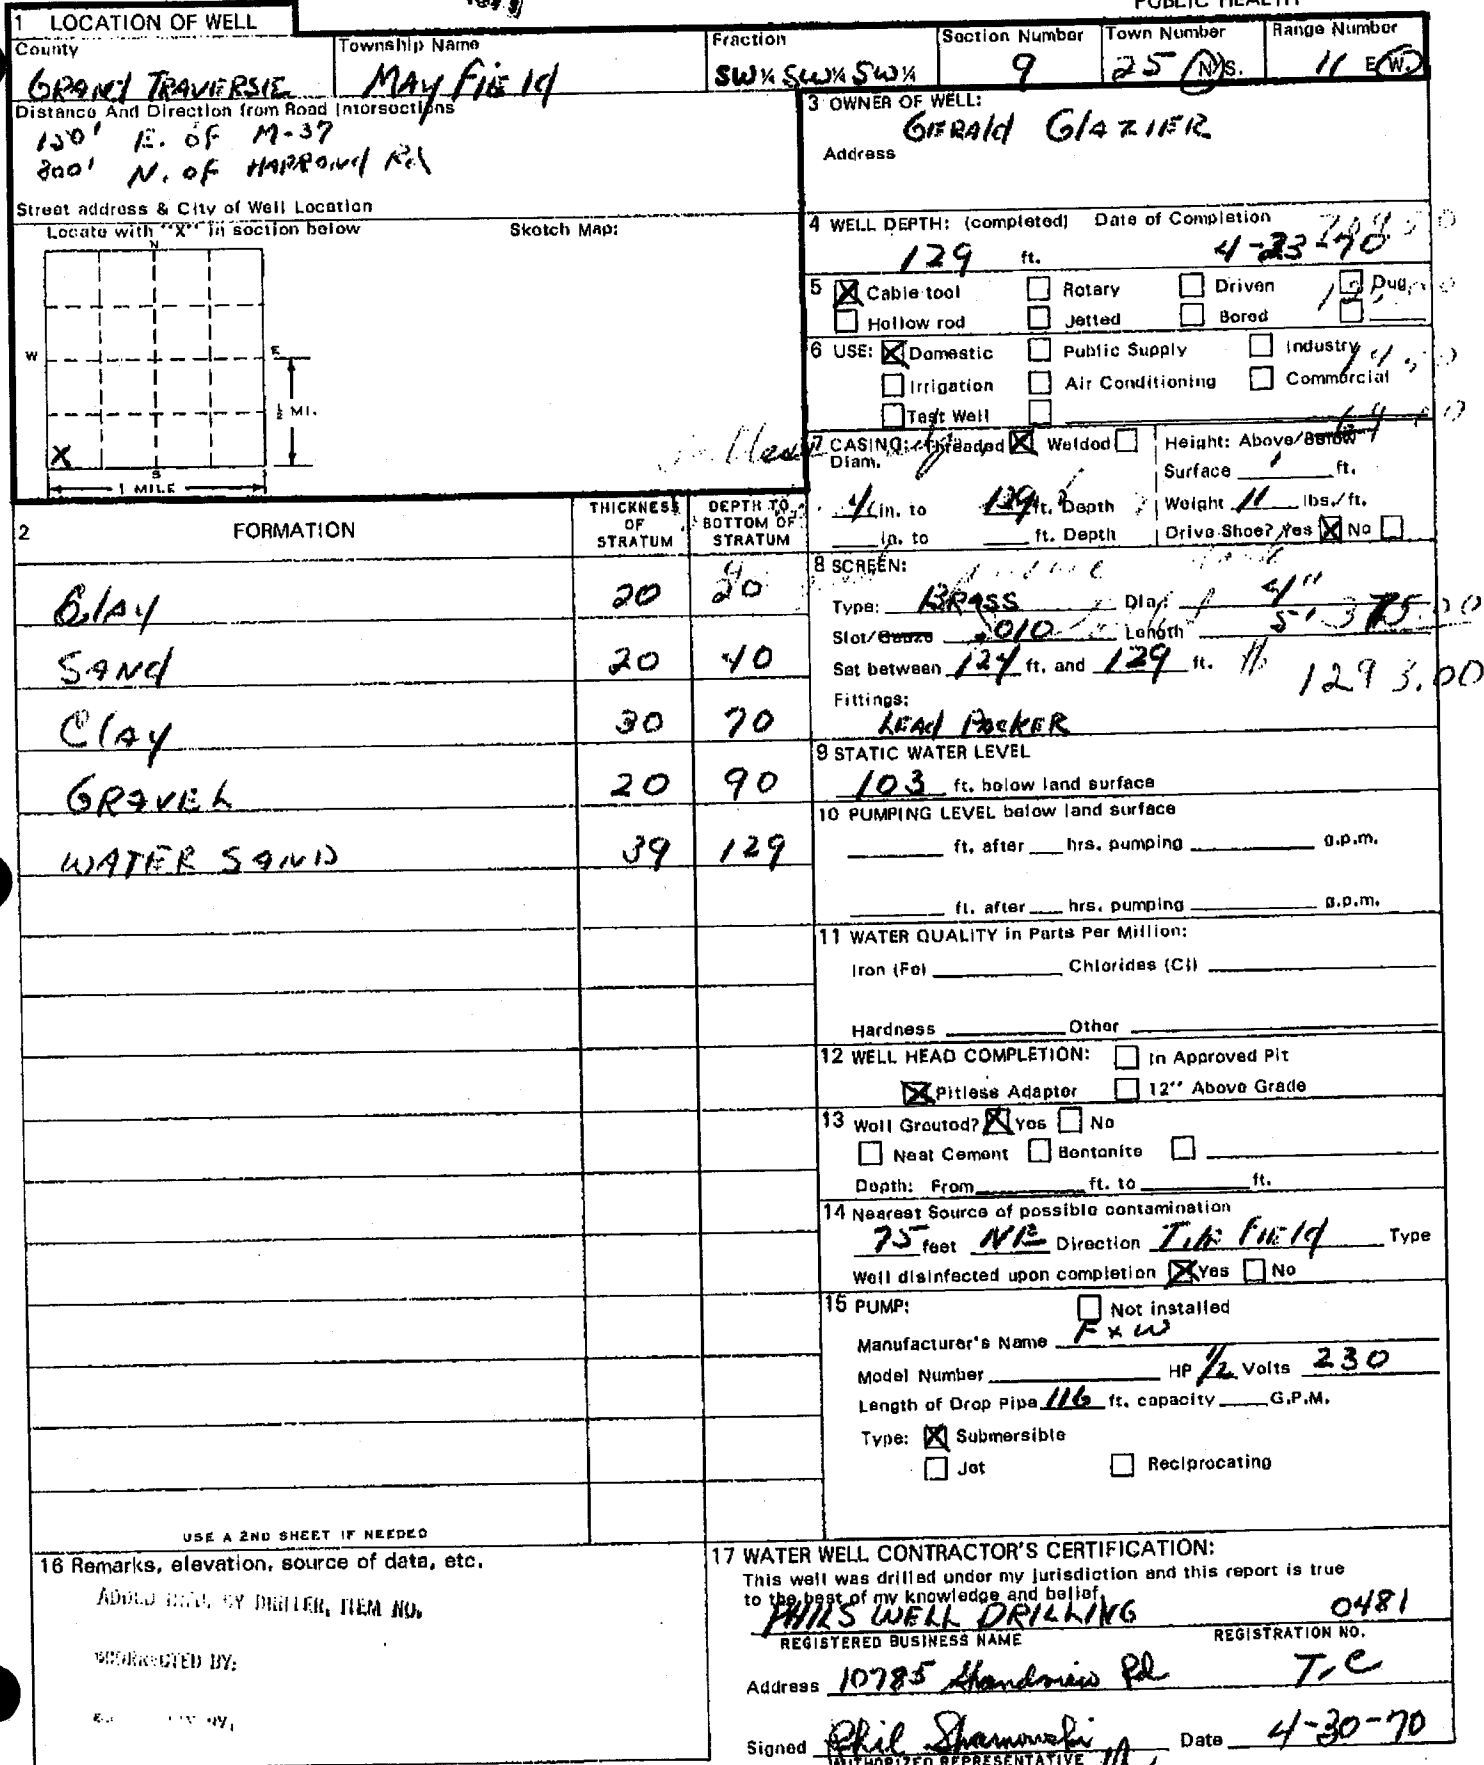 PUBLIC HEALTH
1 LOCATION OF WELL
County
GRAND TRAVERSE
Township Name
MAYFIELD
Fraction
SW¼ SW¼ SW¼
Section Number
9
Town Number
25 N/S.
Range Number
11 E/W.
Distance And Direction from Road Intersections
150' E. OF M-37
800' N. OF HAMMOND Rd
Street address & City of Well Location
Locate with "X" in section below
Sketch Map:
N
W
E
½ MI.
X
S
1 MILE
3 OWNER OF WELL:
GERALD GLAZIER
Address
4 WELL DEPTH: (completed) Date of Completion
129 ft. 4-23-70
5 ☒ Cable tool ☐ Rotary ☐ Driven ☐ Dug
☐ Hollow rod ☐ Jetted ☐ Bored ☐
6 USE: ☒ Domestic ☐ Public Supply ☐ Industry
☐ Irrigation ☐ Air Conditioning ☐ Commercial
☐ Test Well ☐
7 CASING: Threaded ☒ Welded ☐
Diam.
4 in. to 129 ft. Depth
in. to ft. Depth
Height: Above/Below
Surface 1 ft.
Weight 11 lbs./ft.
Drive Shoe? Yes ☒ No ☐
8 SCREEN:
Type: BRASS Dia.: 4"
Slot/Gauze .010 Length 5'
375.00
Set between 124 ft. and 129 ft.
1293.00
Fittings:
LEAD PACKER
9 STATIC WATER LEVEL
103 ft. below land surface
10 PUMPING LEVEL below land surface
ft. after hrs. pumping g.p.m.
ft. after hrs. pumping g.p.m.
11 WATER QUALITY in Parts Per Million:
Iron (Fe) Chlorides (Cl)
Hardness Other
12 WELL HEAD COMPLETION: ☐ In Approved Pit
☒ Pitless Adaptor ☐ 12" Above Grade
13 Well Grouted? ☒ Yes ☐ No
☐ Neat Cement ☐ Bentonite ☐
Depth: From ft. to ft.
14 Nearest Source of possible contamination
75 feet NE Direction TILE FIELD Type
Well disinfected upon completion ☒ Yes ☐ No
15 PUMP: ☐ Not installed
Manufacturer's Name F x W
Model Number HP 1/2 Volts 230
Length of Drop Pipe 116 ft. capacity G.P.M.
Type: ☒ Submersible
☐ Jet ☐ Reciprocating
2 FORMATION
THICKNESS OF STRATUM
DEPTH TO BOTTOM OF STRATUM
Clay 20 20
SAND 20 40
Clay 30 70
GRAVEL 20 90
WATER SAND 39 129
USE A 2ND SHEET IF NEEDED
16 Remarks, elevation, source of data, etc.
ADDED INFO. BY DRILLER, ITEM NO.
CORRECTED BY:
17 WATER WELL CONTRACTOR'S CERTIFICATION:
This well was drilled under my jurisdiction and this report is true
to the best of my knowledge and belief.
PHILS WELL DRILLING 0481
REGISTERED BUSINESS NAME REGISTRATION NO.
Address 10785 Rd T.C
Signed Phil Date 4-30-70
AUTHORIZED REPRESENTATIVE